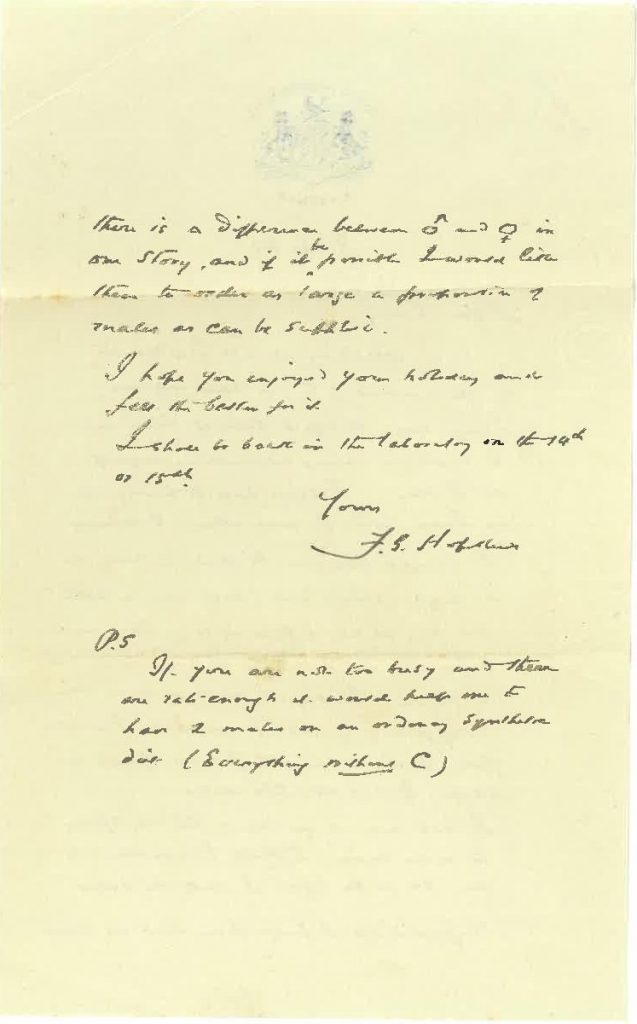 there is a difference between ♂ and ♀ in
our story, and if it be possible I would like
them to order as large a proportion of
males as can be supplied.
I hope you enjoyed your holiday and
feel the better for it.
I shall be back in the laboratory on the 14th
or 15th.
Yours
F.G. Hopkins
P.S
If you are not too busy and there
are rats enough it would help me to
have 2 males on an ordinary synthetic
diet (Everything without C)